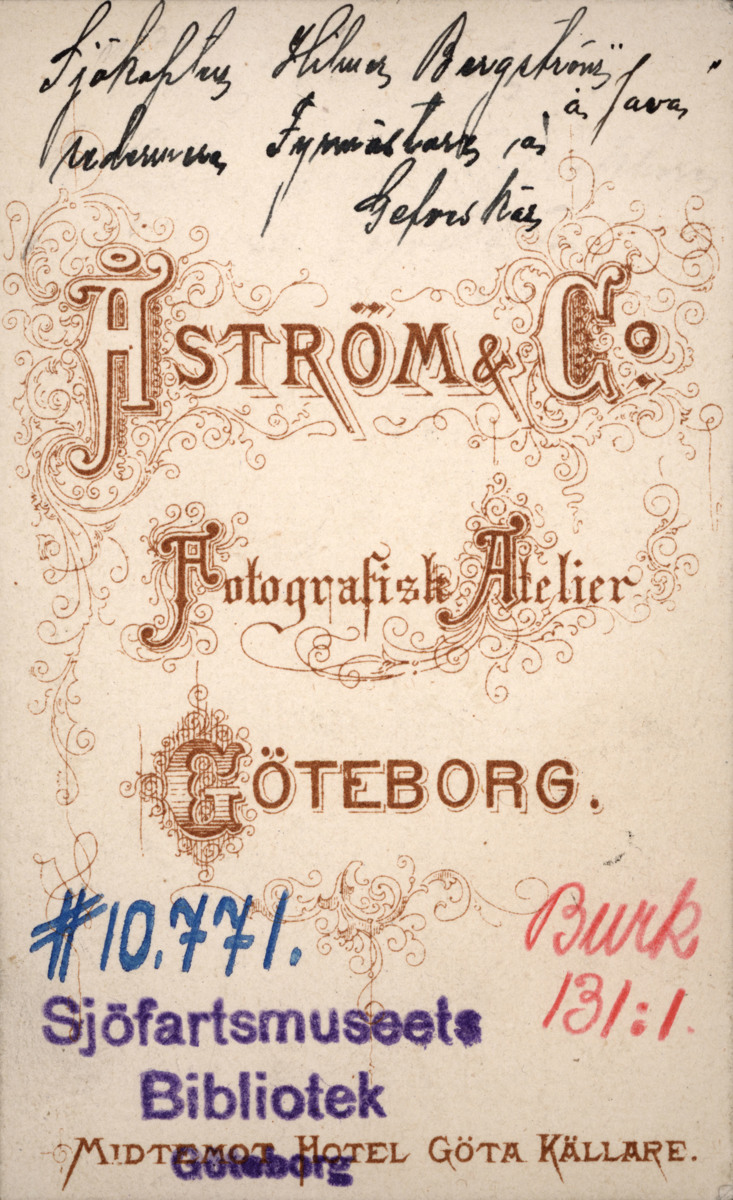 Sjökapten Hilmer Bergström
å Java
sedermera Fyrmästare å
Gefvskär
ÅSTRÖM & Co.
Fotografisk Atelier
GÖTEBORG.
#10.771.
Burk
131:1.
Sjöfartsmuseets
Bibliotek
Göteborg
MIDTEMOT HOTEL GÖTA KÄLLARE.